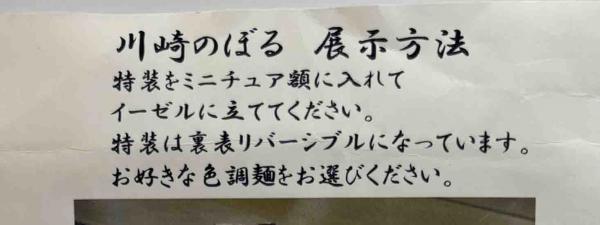 川崎のぼる 展示方法
特装をミニチュア額に入れて
イーゼルに立ててください。
特装は裏表リバーシブルになっています。
お好きな色調麺をお選びください。